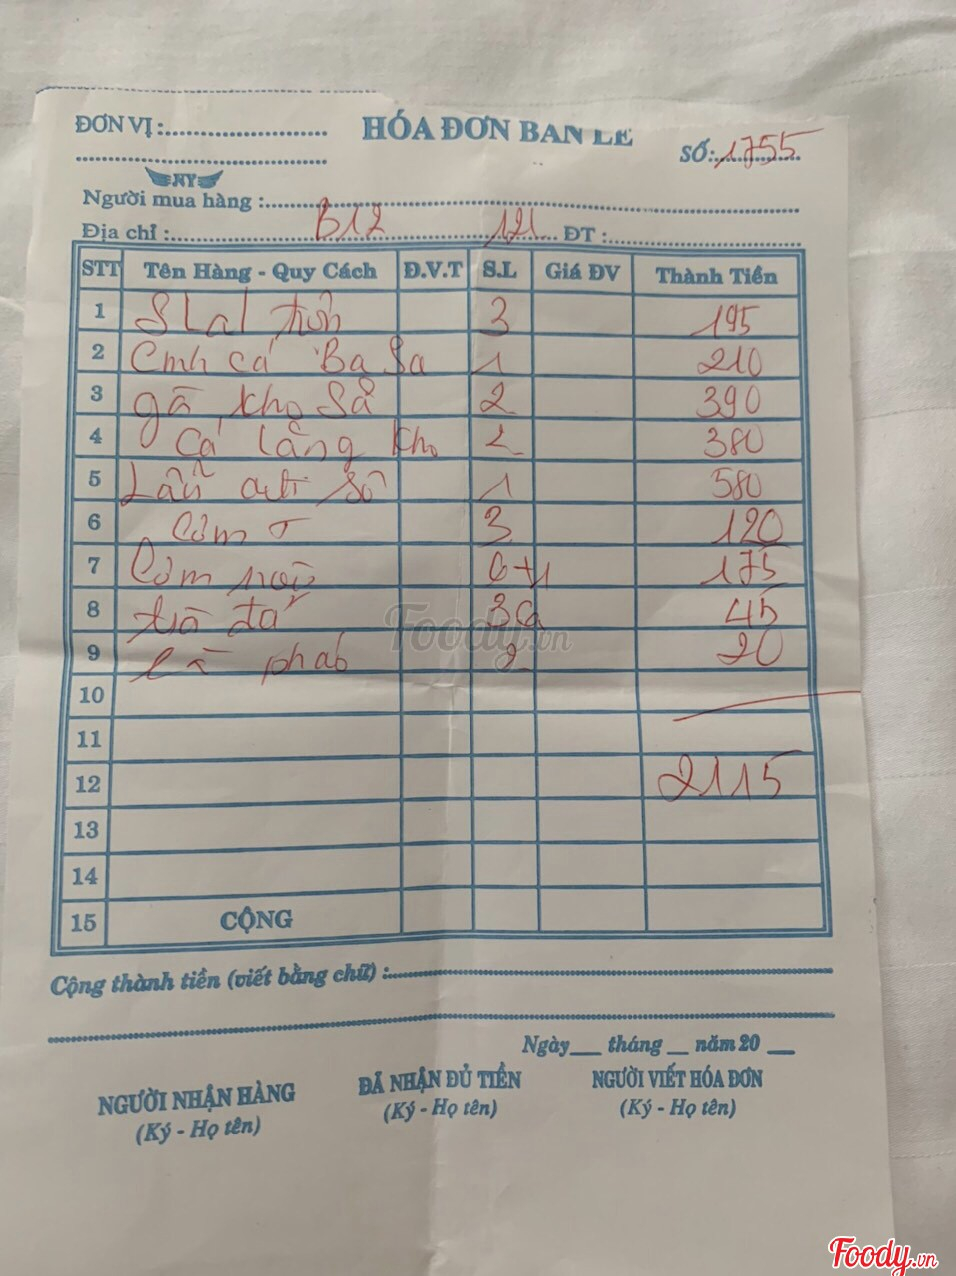 ĐƠN VỊ: HÓA ĐƠN BAN LE SỐ: 1755
NY
Người mua hàng :
Địa chỉ : B12 121 ĐT :
STT Tên Hàng - Quy Cách Đ.V.T S.L Giá ĐV Thành Tiền
1 3 195
2 cá Ba Sa 1 210
3 gà kho Sả 2 390
4 Cá lăng kho 2 380
5 Lẩu 1 580
6 Cơm 3 120
7 Cơm 6+1 175
8 trà đá 3Ca 45
9 2 20
10
11
12 2115
13
14
15 CỘNG
Cộng thành tiền (viết bằng chữ) :
Ngày___ tháng __ năm 20 ___
NGƯỜI NHẬN HÀNG ĐÃ NHẬN ĐỦ TIỀN NGƯỜI VIẾT HÓA ĐƠN
(Ký - Họ tên) (Ký - Họ tên) (Ký - Họ tên)
Foody.vn
Foody.vn